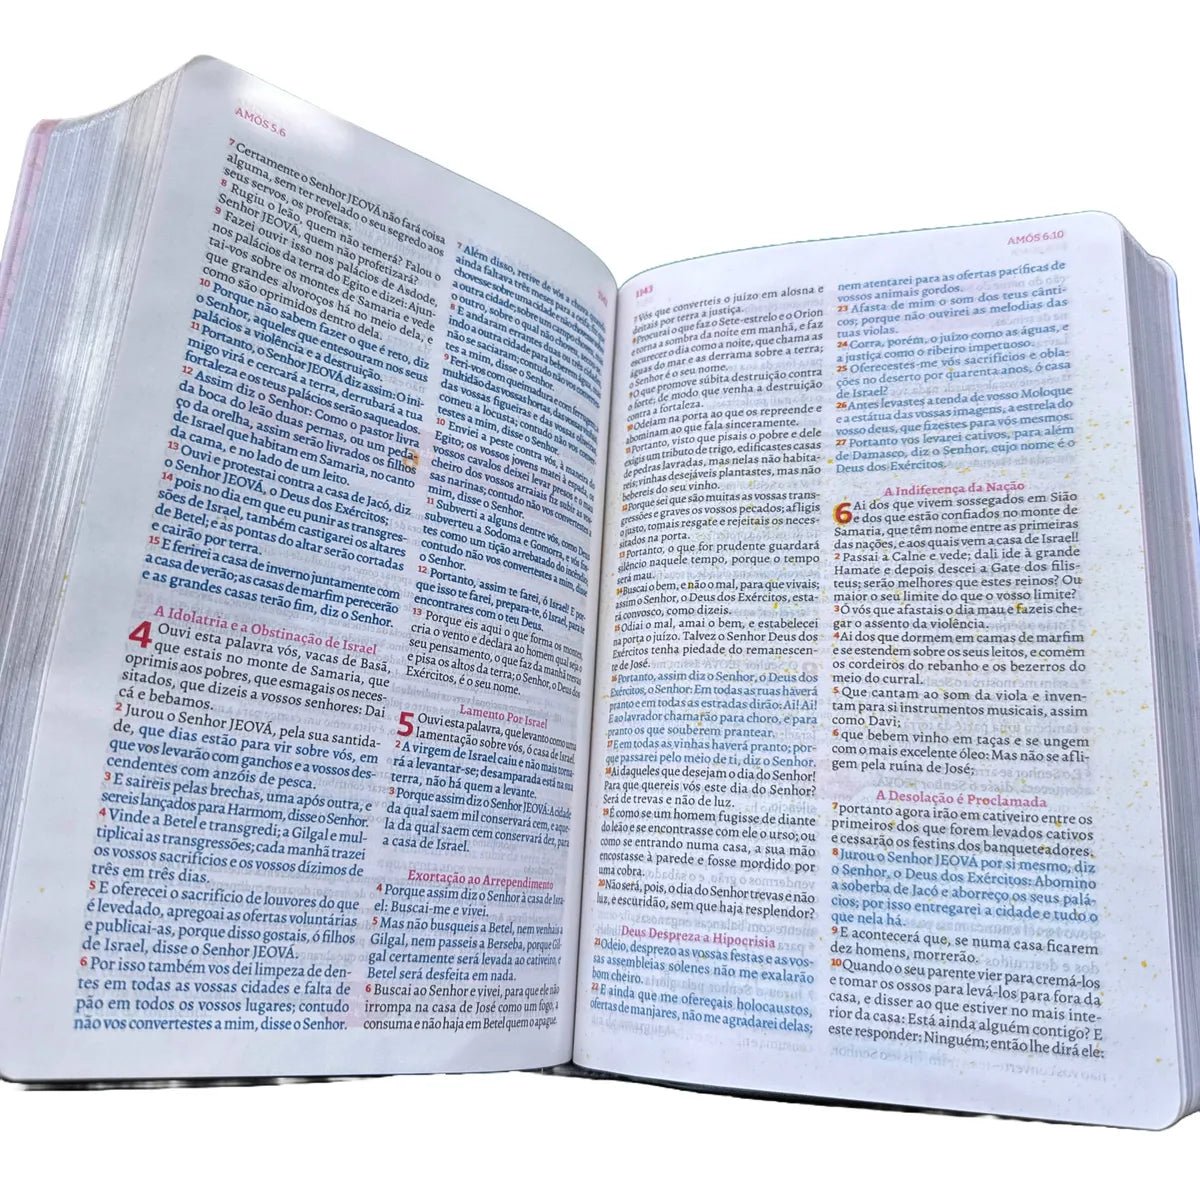 AMÓS 5.6
7 Certamente o Senhor JEOVÁ não fará coisa
alguma, sem ter revelado o seu segredo aos
seus servos, os profetas.
8 Rugiu o leão, quem não temerá? Falou o
Senhor JEOVÁ, quem não profetizará?
9 Fazei ouvir isso nos palácios de Asdode,
nos palácios da terra do Egito e dizei: Ajun-
tai-vos sobre os montes de Samaria e vede
que grandes alvoroços há no meio dela, e
como são oprimidos dentro dela.
10 Porque não sabem fazer o que é reto, diz
o Senhor, aqueles que entesouram nos seus
palácios a violência e a destruição.
11 Portanto, o Senhor JEOVÁ diz assim: O ini-
migo virá e cercará a terra, derrubará a tua
fortaleza e os teus palácios serão saqueados.
12 Assim diz o Senhor: Como o pastor livra
da boca do leão duas pernas, ou um peda-
ço da orelha, assim serão livrados os filhos
de Israel que habitam em Samaria, no canto
da cama, e no lado de um leito.
13 Ouvi e protestai contra a casa de Jacó, diz
o Senhor JEOVÁ, o Deus dos Exércitos;
14 pois no dia em que eu punir as transgres-
sões de Israel, também castigarei os altares
de Betel; e as pontas do altar serão cortadas
e cairão por terra.
15 E ferirei a casa de inverno juntamente com
a casa de verão; as casas de marfim perecerão
e as grandes casas terão fim, diz o Senhor.
A Idolatria e a Obstinação de Israel
4 Ouvi esta palavra vós, vacas de Basã,
que estais no monte de Samaria, que
oprimis aos pobres, que esmagais os neces-
sitados, que dizeis a vossos senhores: Dai
cá e bebamos.
2 Jurou o Senhor JEOVÁ, pela sua santida-
de, que dias estão para vir sobre vós, em
que vos levarão com ganchos e a vossos des-
cendentes com anzóis de pesca.
3 E saireis pelas brechas, uma após outra, e
sereis lançados para Harmom, disse o Senhor.
4 Vinde a Betel e transgredi; a Gilgal e mul-
tiplicai as transgressões; cada manhã trazei
os vossos sacrifícios e os vossos dízimos de
três em três dias.
5 E oferecei o sacrifício de louvores do que
é levedado, apregoai as ofertas voluntárias
e publicai-as, porque disso gostais, ó filhos
de Israel, disse o Senhor JEOVÁ.
6 Por isso também vos dei limpeza de den-
tes em todas as vossas cidades e falta de
pão em todos os vossos lugares; contudo
não vos convertestes a mim, disse o Senhor.
7 Além disso, retive de vós a chuva
ainda faltava três meses para a ceifa
chovesse sobre uma cidade e não chovesse
a outra cidade; sobre um campo choveu
o outro, sobre o qual não choveu, secou
8 E andaram errantes duas ou três cidades
indo a outra cidade para beberem água
não se saciaram; contudo não vos convertestes
a mim, disse o Senhor.
9 Feri-vos com queimadura e com ferrugem
multidão das vossas hortas, das vossas vinhas
das vossas figueiras e das vossas oliveiras
comeu a locusta; contudo não vos conver-
testes a mim, disse o Senhor.
10 Enviei a peste contra vós, à maneira do
Egito; os vossos jovens matei à espada, os
vossos cavalos deixei levar presos, e o mau
cheiro dos vossos arraiais fiz subir às vos-
sas narinas; contudo não vos convertestes a
mim, disse o Senhor.
11 Subverti a alguns dentre vós, como Deus
subverteu a Sodoma e Gomorra, e vós fostes
como um tição arrebatado do incêndio;
contudo não vos convertestes a mim, disse
o Senhor.
12 Portanto, assim te farei, ó Israel! E por-
que isso te farei, prepara-te, ó Israel, para te
encontrares com o teu Deus.
13 Porque eis aqui o que forma os montes,
cria o vento e declara ao homem qual seja o
seu pensamento, o que faz da manhã trevas
e pisa os altos da terra; o Senhor, o Deus dos
Exércitos, é o seu nome.
Lamento Por Israel
5 Ouvi esta palavra, que levanto como uma
lamentação sobre vós, ó casa de Israel.
2 A virgem de Israel caiu e não mais torna-
rá a levantar-se; desamparada está na sua
terra, não há quem a levante.
3 Porque assim diz o Senhor JEOVÁ: A cidade
da qual saem mil conservará cem, e aque-
la da qual saem cem conservará dez, para
a casa de Israel.
Exortação ao Arrependimento
4 Porque assim diz o Senhor à casa de Isra-
el: Buscai-me e vivei.
5 Mas não busqueis a Betel, nem venhais a
Gilgal, nem passeis a Berseba, porque Gil-
gal certamente será levado ao cativeiro, e
Betel será desfeita em nada.
6 Buscai ao Senhor e vivei, para que ele não
irrompa na casa de José como um fogo, a
consuma e não haja em Betel quem o apague.
1143
7 Vós que converteis o juízo em alosna e
deitais por terra a justiça.
8 Procurai o que faz o Sete-estrelo e o Orion
e torna a sombra da noite em manhã, e faz
escurecer o dia como a noite, que chama as
águas do mar e as derrama sobre a terra;
o Senhor é o seu nome.
9 O que promove súbita destruição contra
o forte; de modo que venha a destruição
contra a fortaleza.
10 Odeiam na porta ao que os repreende e
abominam ao que fala sinceramente.
11 Portanto, visto que pisais o pobre e dele
exigis um tributo de trigo, edificastes casas
de pedras lavradas, mas nelas não habita-
reis; vinhas desejáveis plantastes, mas não
bebereis do seu vinho.
12 Porque sei que são muitas as vossas trans-
gressões e graves os vossos pecados; afligis
o justo, tomais resgate e rejeitais os neces-
sitados na porta.
13 Portanto, o que for prudente guardará
silêncio naquele tempo, porque o tempo
será mau.
14 Buscai o bem, e não o mal, para que vivais;
e assim o Senhor, o Deus dos Exércitos, esta-
rá convosco, como dizeis.
15 Odiai o mal, amai o bem, e estabelecei
na porta o juízo. Talvez o Senhor Deus dos
Exércitos tenha piedade do remanescen-
te de José.
16 Portanto, assim diz o Senhor, o Deus dos
Exércitos, o Senhor: Em todas as ruas haverá
pranto e em todas as estradas dirão: Ai! Ai!
E ao lavrador chamarão para choro, e para
o pranto os que souberem prantear.
17 E em todas as vinhas haverá pranto; por-
que passarei pelo meio de ti, diz o Senhor.
18 Ai daqueles que desejam o dia do Senhor!
Para que quereis vós este dia do Senhor?
Será de trevas e não de luz.
19 É como se um homem fugisse de diante
do leão e se encontrasse com ele o urso; ou
como se entrando numa casa, a sua mão
encostasse à parede e fosse mordido por
uma cobra.
20 Não será, pois, o dia do Senhor trevas e não
luz, e escuridão, sem que haja resplendor?
Deus Despreza a Hipocrisia
21 Odeio, desprezo as vossas festas e as vos-
sas assembleias solenes não me exalarão
bom cheiro.
22 E ainda que me ofereçais holocaustos,
ofertas de manjares, não me agradarei delas;
AMÓS 6.10
nem atentarei para as ofertas pacíficas de
vossos animais gordos.
23 Afasta de mim o som dos teus cânti-
cos; porque não ouvirei as melodias das
tuas violas.
24 Corra, porém, o juízo como as águas, e
a justiça como o ribeiro impetuoso.
25 Oferecestes-me vós sacrifícios e obla-
ções no deserto por quarenta anos, ó casa
de Israel?
26 Antes levastes a tenda de vosso Moloque
e a estátua das vossas imagens, a estrela do
vosso deus, que fizestes para vós mesmos.
27 Portanto vos levarei cativos, para além
de Damasco, diz o Senhor, cujo nome é o
Deus dos Exércitos.
A Indiferença da Nação
6 Ai dos que vivem sossegados em Sião
e dos que estão confiados no monte de
Samaria, que têm nome entre as primeiras
das nações, e aos quais vem a casa de Israel!
2 Passai a Calne e vede; dali ide à grande
Hamate e depois descei a Gate dos filis-
teus; serão melhores que estes reinos? Ou
maior o seu limite do que o vosso limite?
3 Ó vós que afastais o dia mau e fazeis che-
gar o assento da violência.
4 Ai dos que dormem em camas de marfim
e se estendem sobre os seus leitos, e comem
os cordeiros do rebanho e os bezerros do
meio do curral.
5 Que cantam ao som da viola e inven-
tam para si instrumentos musicais, assim
como Davi;
6 que bebem vinho em taças e se ungem
com o mais excelente óleo: Mas não se afli-
gem pela ruína de José;
A Desolação é Proclamada
7 portanto agora irão em cativeiro entre os
primeiros dos que forem levados cativos
e cessarão os festins dos banqueteadores.
8 Jurou o Senhor JEOVÁ por si mesmo, diz
o Senhor, o Deus dos Exércitos: Abomino
a soberba de Jacó e aborreço os seus palá-
cios; por isso entregarei a cidade e tudo o
que nela há.
9 E acontecerá que, se numa casa ficarem
dez homens, morrerão.
10 Quando o seu parente vier para cremá-los
e tomar os ossos para levá-los para fora da
casa, e disser ao que estiver no mais inte-
rior da casa: Está ainda alguém contigo? E
este responder: Ninguém; então lhe dirá ele: